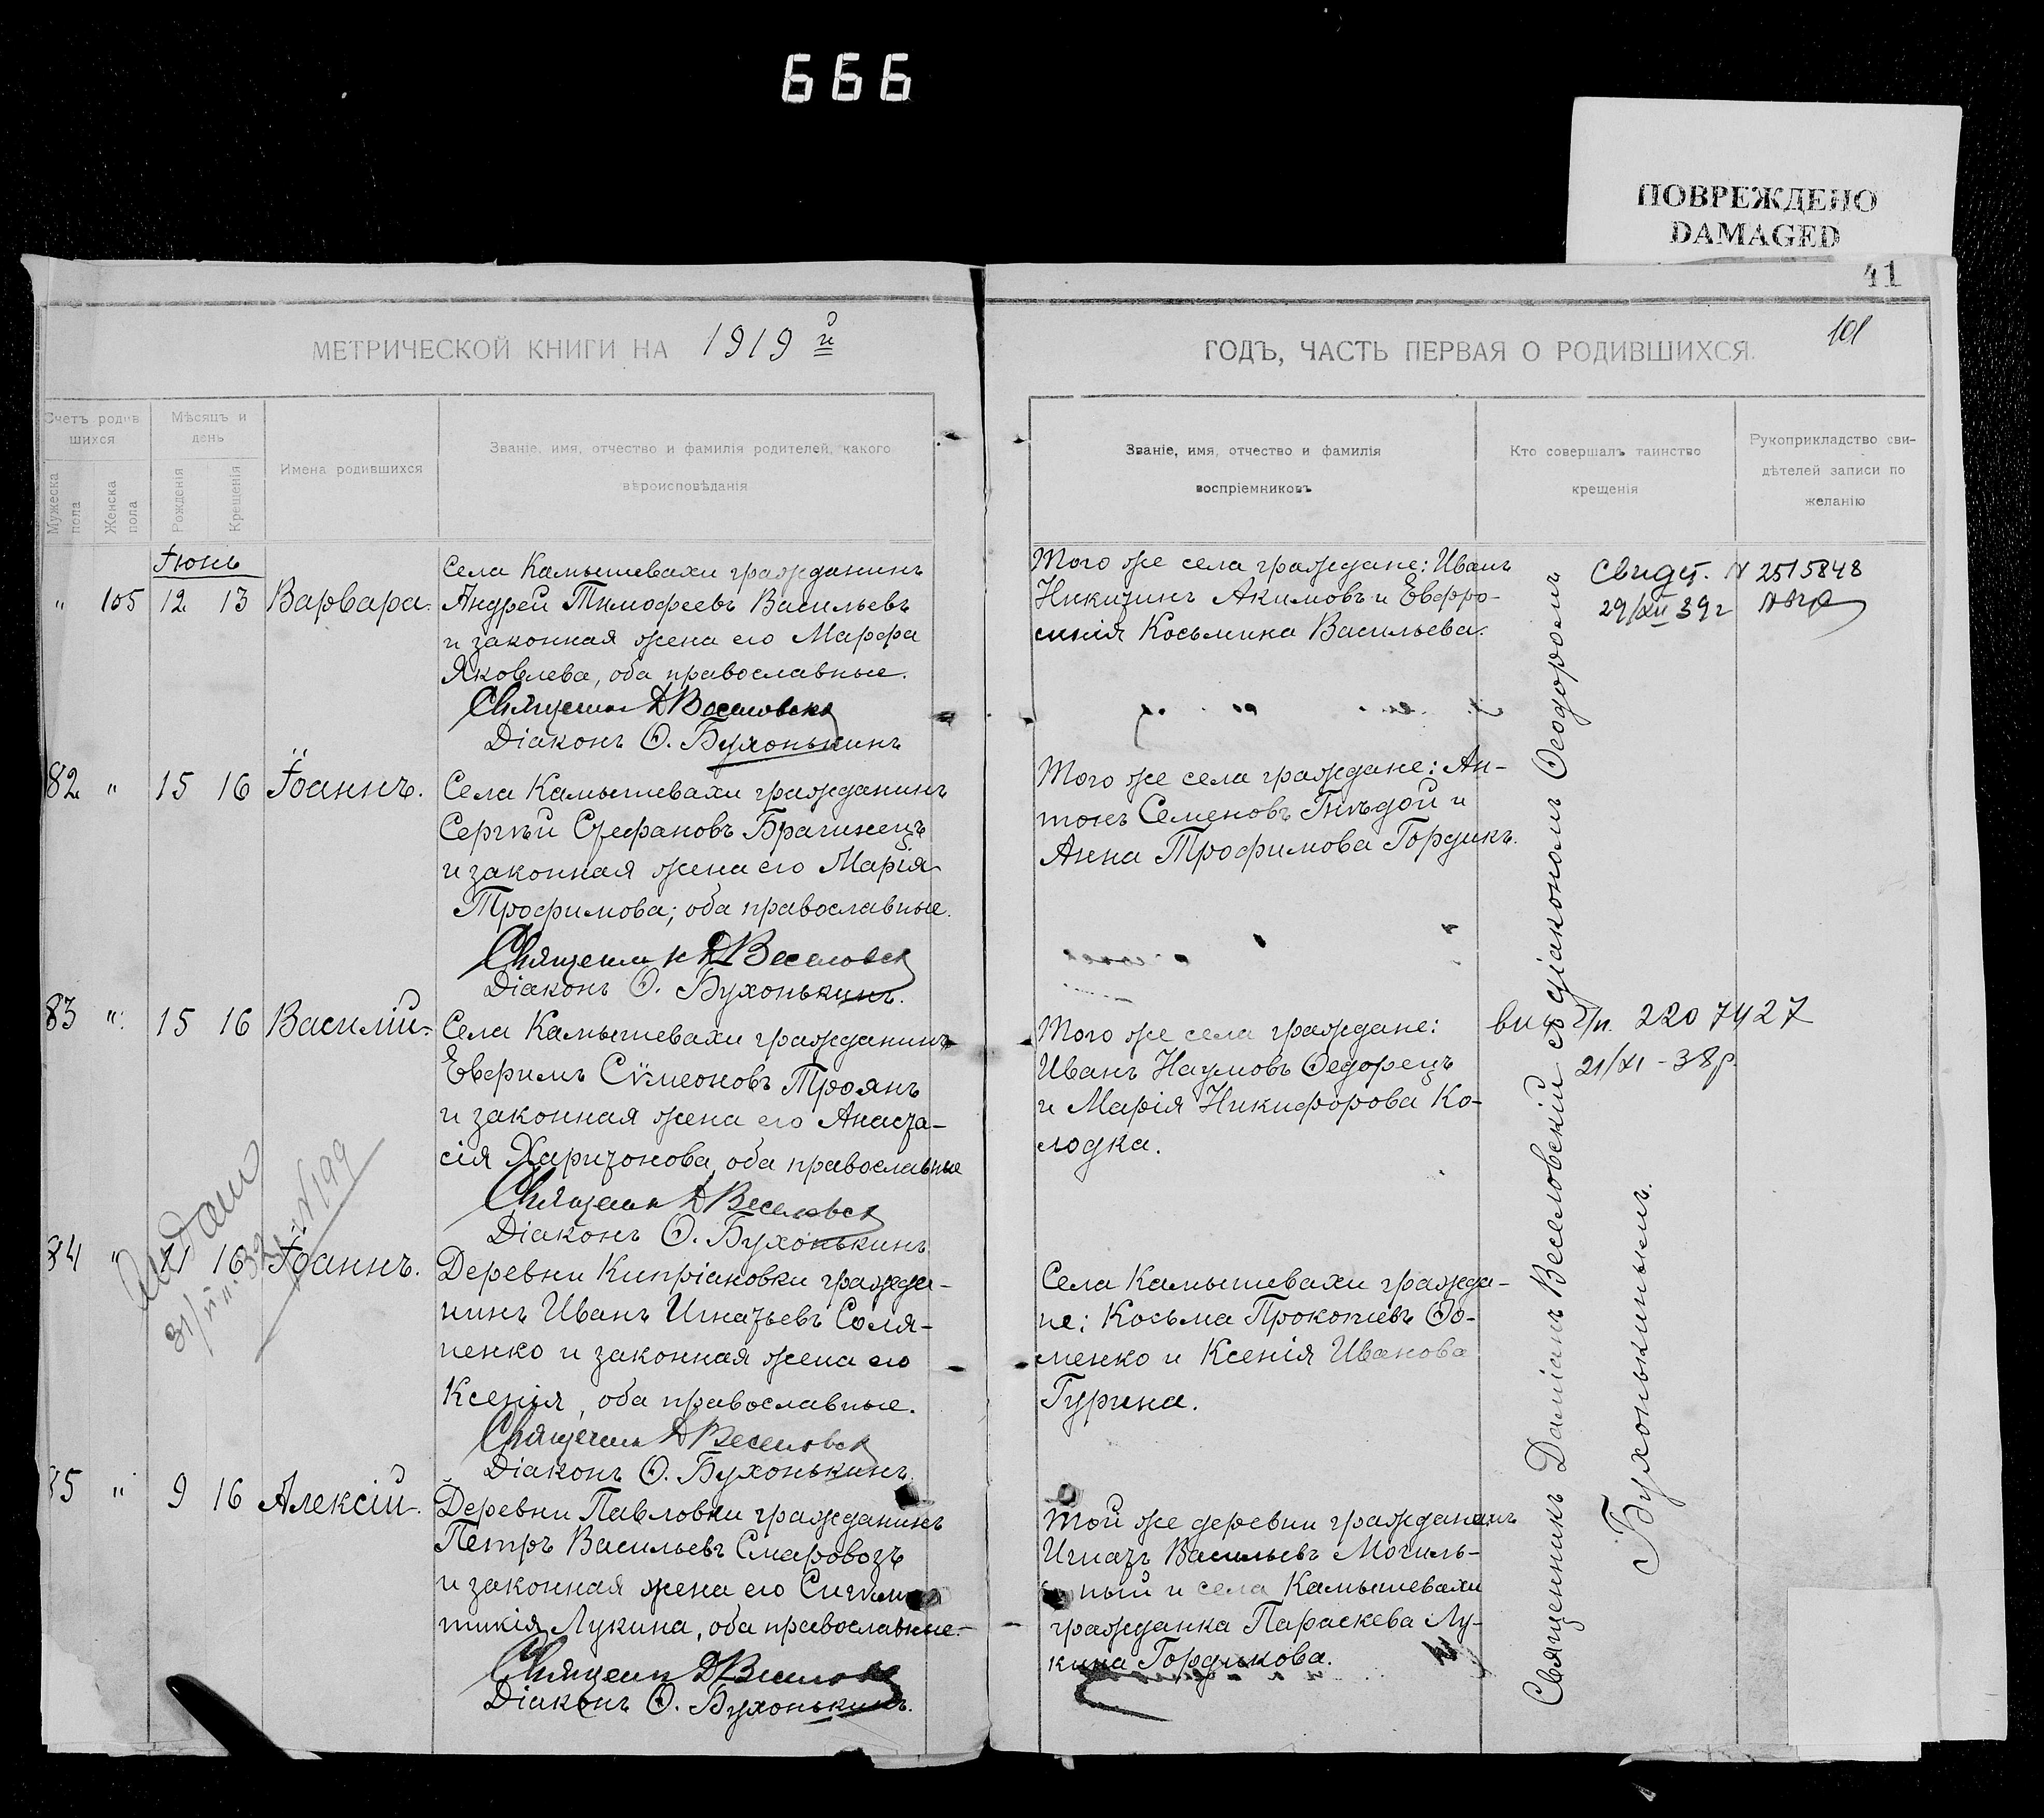 666
ПОВРЕЖДЕНО
DAMAGED
41
101
МЕТРИЧЕСКОЙ КНИГИ НА 1919 й
Счетъ родив
шихся
Мужеска
пола
Женска
пола
Мѣсяцъ и
день
Рожденія
Крещенія
Имена родившихся
Званіе, имя, отчество и фамилія родителей, какого
вѣроисповѣданія
Іюнь
" 105 12 13 Варвара.
Села Камышевахи гражданинъ
Андрей Тимофеевъ Васильевъ
и законная жена его Марфа
Яковлева, оба православные.
Священник Д Веселовск
Діаконъ Ѳ. Бухонькинъ
82 " 15 16 Іоаннъ.
Села Камышевахи гражданинъ
Сергѣй Стефановъ Брагинецъ
и законная жена его Марія
Трофимова; оба православные.
Священник Д Веселовск
Діаконъ Ѳ. Бухонькинъ.
83 " 15 16 Василій.
Села Камышевахи гражданинъ
Евфимъ Сѵмеоновъ Троянъ
и законная жена его Анаста-
сія Харитонова, оба православные
Священник Д Веселовск
Діаконъ Ѳ. Бухонькинъ
84 " 11 16 Іоаннъ.
N 199
Деревни Кипріановки гражда-
нинъ Иванъ Игнатьевъ Соля-
ненко и законная жена его
Ксенія, оба православные.
Священник Д Веселовск
Діаконъ Ѳ. Бухонькинъ.
85 " 9 16 Алексій.
Деревни Павловки гражданинъ
Петръ Васильевъ Смаровозъ
и законная жена его
Лукина, оба православные.
Священник Д Веселовск
Діаконъ Ѳ. Бухонькинъ.
ГОДЪ, ЧАСТЬ ПЕРВАЯ О РОДИВШИХСЯ.
Званіе, имя, отчество и фамилія
воспріемниковъ
Кто совершалъ таинство
крещенія
Рукоприкладство сви-
дѣтелей записи по
желанію
Того же села граждане: Иванъ
Никитинъ Акимовъ и Евфро-
синія Косьмина Васильева.
Того же села граждане: Ан-
тонъ Семеновъ Гнѣдой и
Анна Трофимова Гордикъ.
Того же села граждане:
Иванъ Наумовъ Ѳедорецъ
и Марія Никифорова Ко-
лодка.
Села Камышевахи гражда-
не: Косьма Прокопіевъ Ѳо-
менко и Ксенія Иванова
Гурина.
Той же деревни гражданинъ
Игнатъ Васильевъ Могиль-
ный и села Камышевахи
гражданка Параскева Лу-
кина Гордикова.
Священникъ Даміанъ Веселовскій съ діакономъ Ѳеодоромъ
Бухонькинымъ.
Свидет. N 2515848
29/XII 39 г
2207427
21/XI - 38 р.